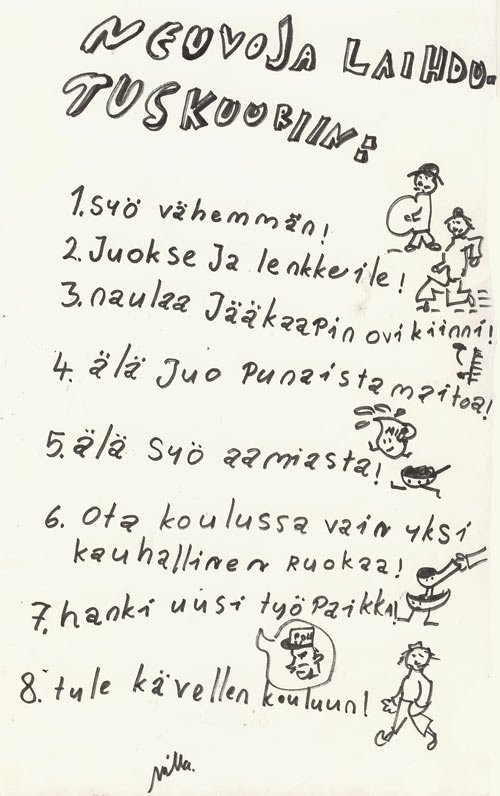 NEUVOJA LAIHDU-
TUSKUURIIN:
1. Syö vähemmän!
2. Juokse Ja lenkkeile!
3. naulaa Jääkaapin ovi kiinni!
4. älä Juo Punaista maitoa!
5. älä syö aamiasta!
6. Ota koulussa vain yksi
kauhallinen Ruokaa!
7. hanki uusi työPaikka!
8. tule kävellen kouluun!